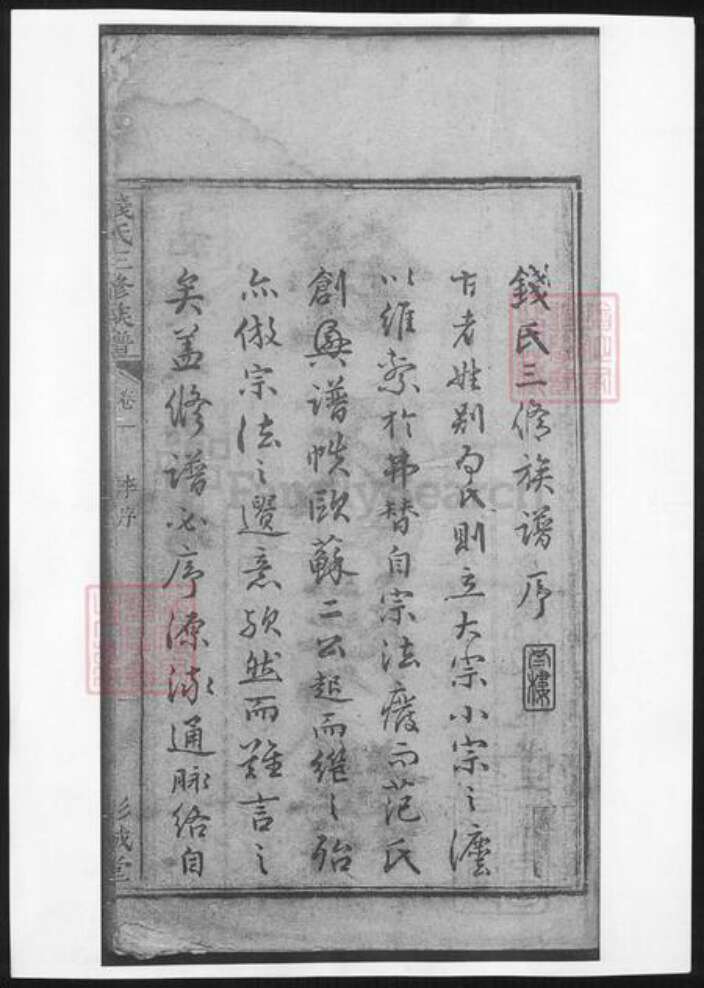 錢氏三修族譜序
古者姓別為氏則立大宗小宗之灋
以維系於弗替自宗法廢而范氏
創興譜帙歐蘇二公起而繼之殆
亦倣宗法之遺意歟然而難言之
矣蓋修譜必序源流通脉絡自
錢氏三修族譜 卷一 李序 彭城堂
FamilySearch